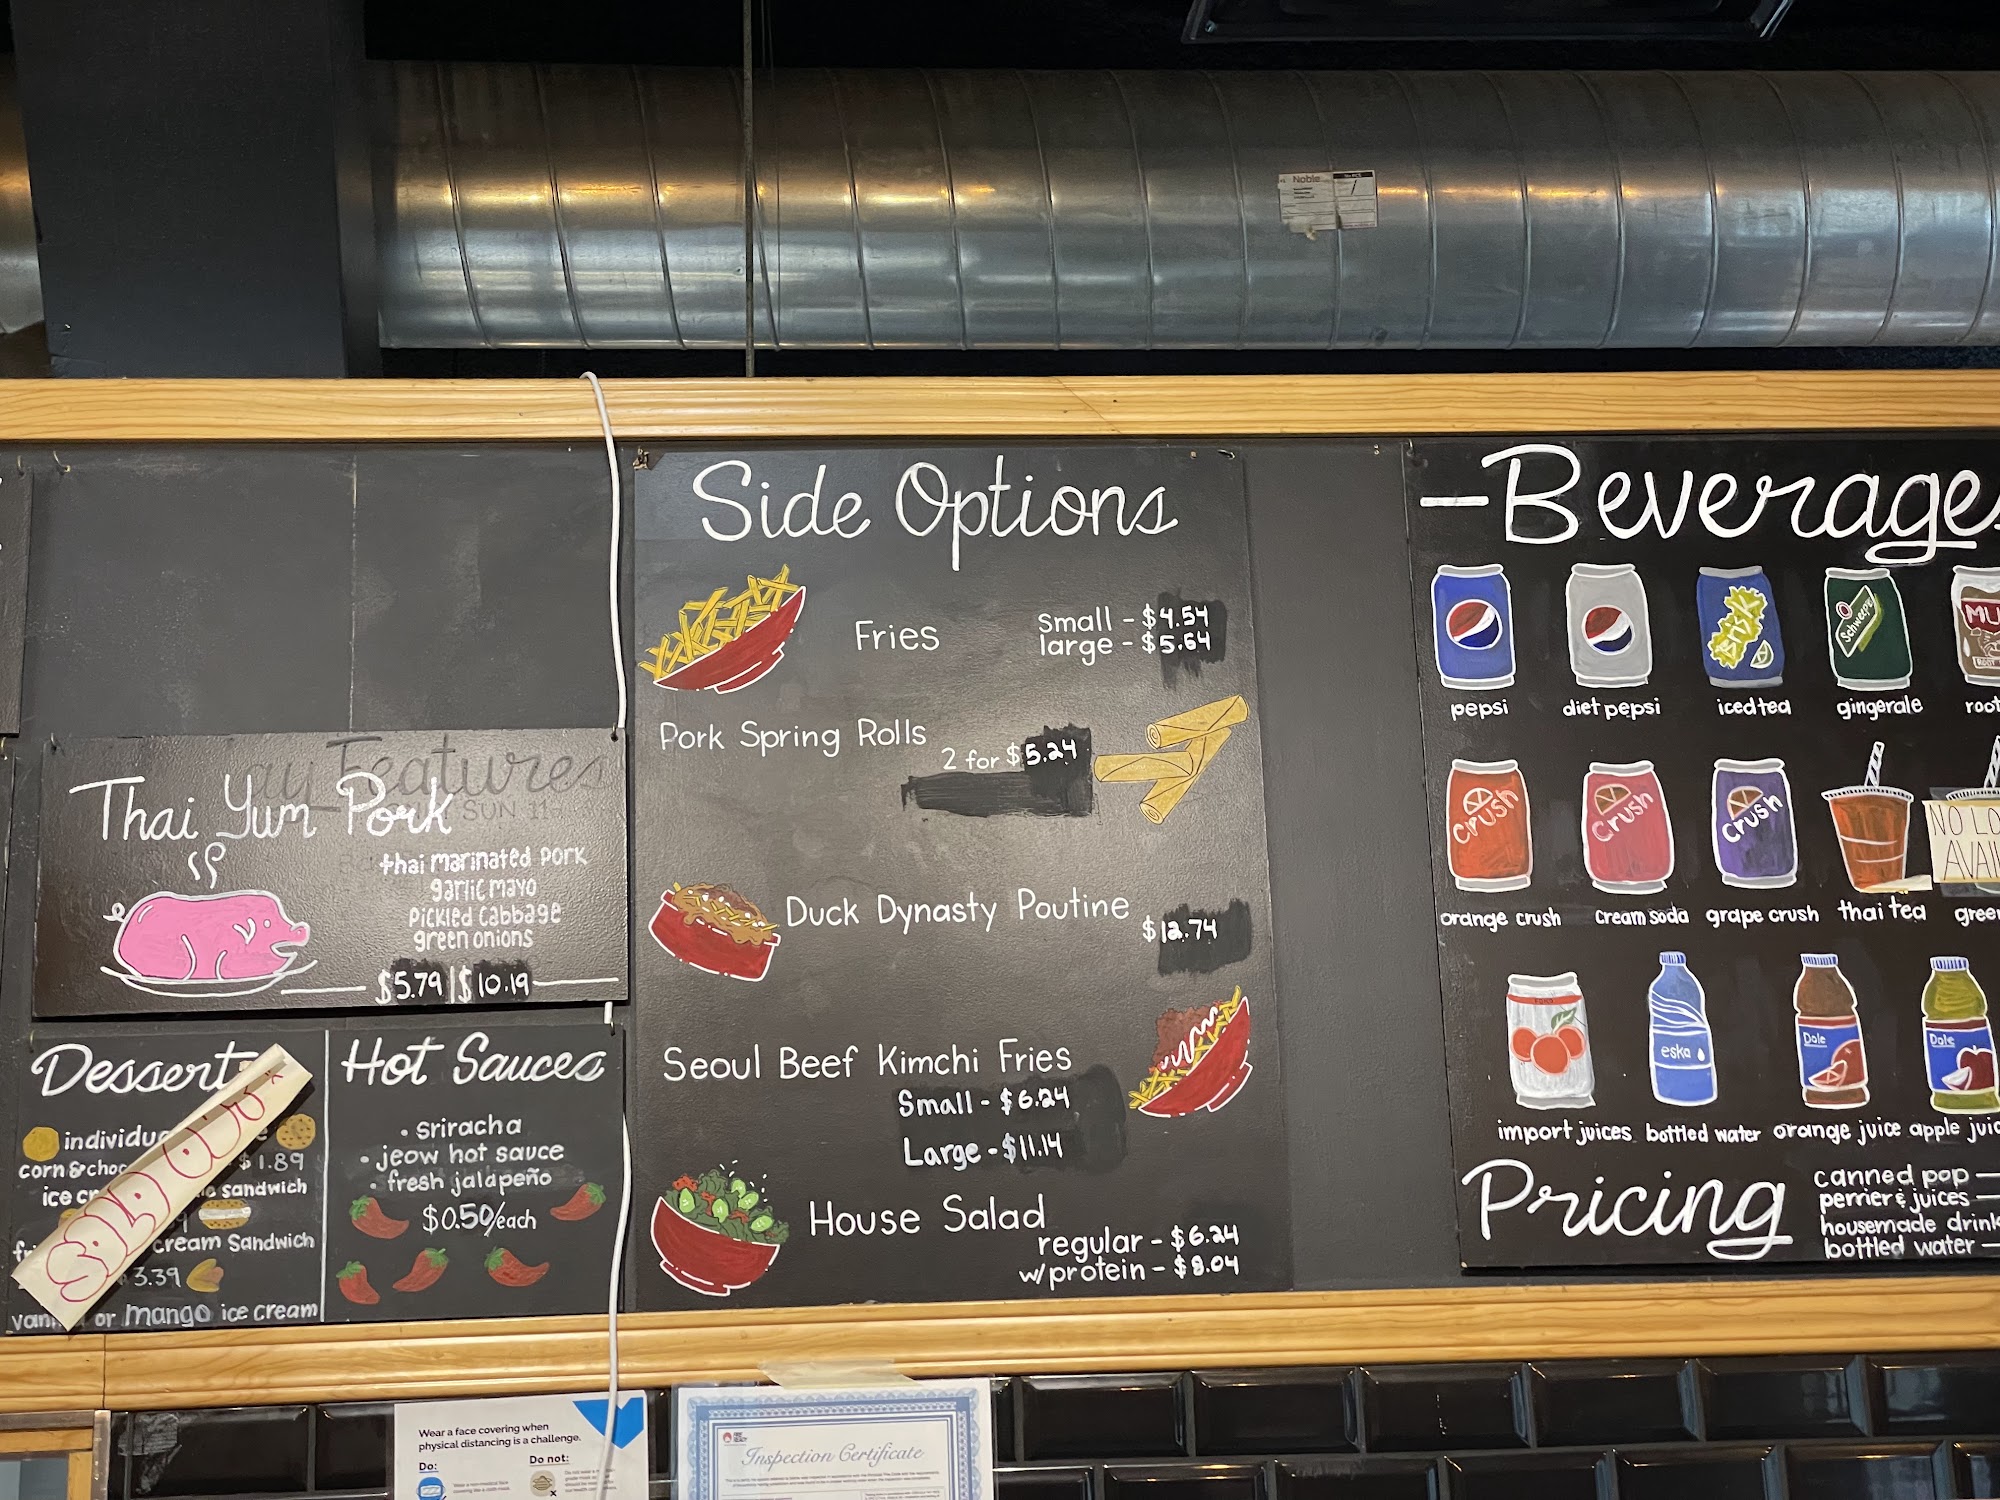 Noble
Side Options
Fries
small - $4.54
large - $5.64
Pork Spring Rolls
2 for $5.24
Duck Dynasty Poutine
$12.74
Seoul Beef Kimchi Fries
Small - $6.24
Large - $11.14
House Salad
regular - $6.24
w/protein - $8.04
ay Features
SUN 11-
Thai Yum Pork
thai marinated pork
garlic mayo
pickled cabbage
green onions
$5.79 | $10.19
Dessert
SOLD OUT
individu
$1.89
corn & choc
ice cr
sandwich
cream sandwich
3.39
or mango ice cream
Hot Sauces
• sriracha
• jeow hot sauce
• fresh jalapeño
$0.50/each
-Beverages
brisk
Schweppes
MU
ROOT
pepsi
diet pepsi
iced tea
gingerale
root
Crush
Crush
Crush
NO LO
AVAI
orange crush
cream soda
grape crush
thai tea
green
eska
Dole
Dole
import juices
bottled water
orange juice
apple juic
Pricing
canned pop -
perrier & juices -
housemade drink
bottled water -
Wear a face covering when
physical distancing is a challenge.
Do:
Do not:
Inspection Certificate